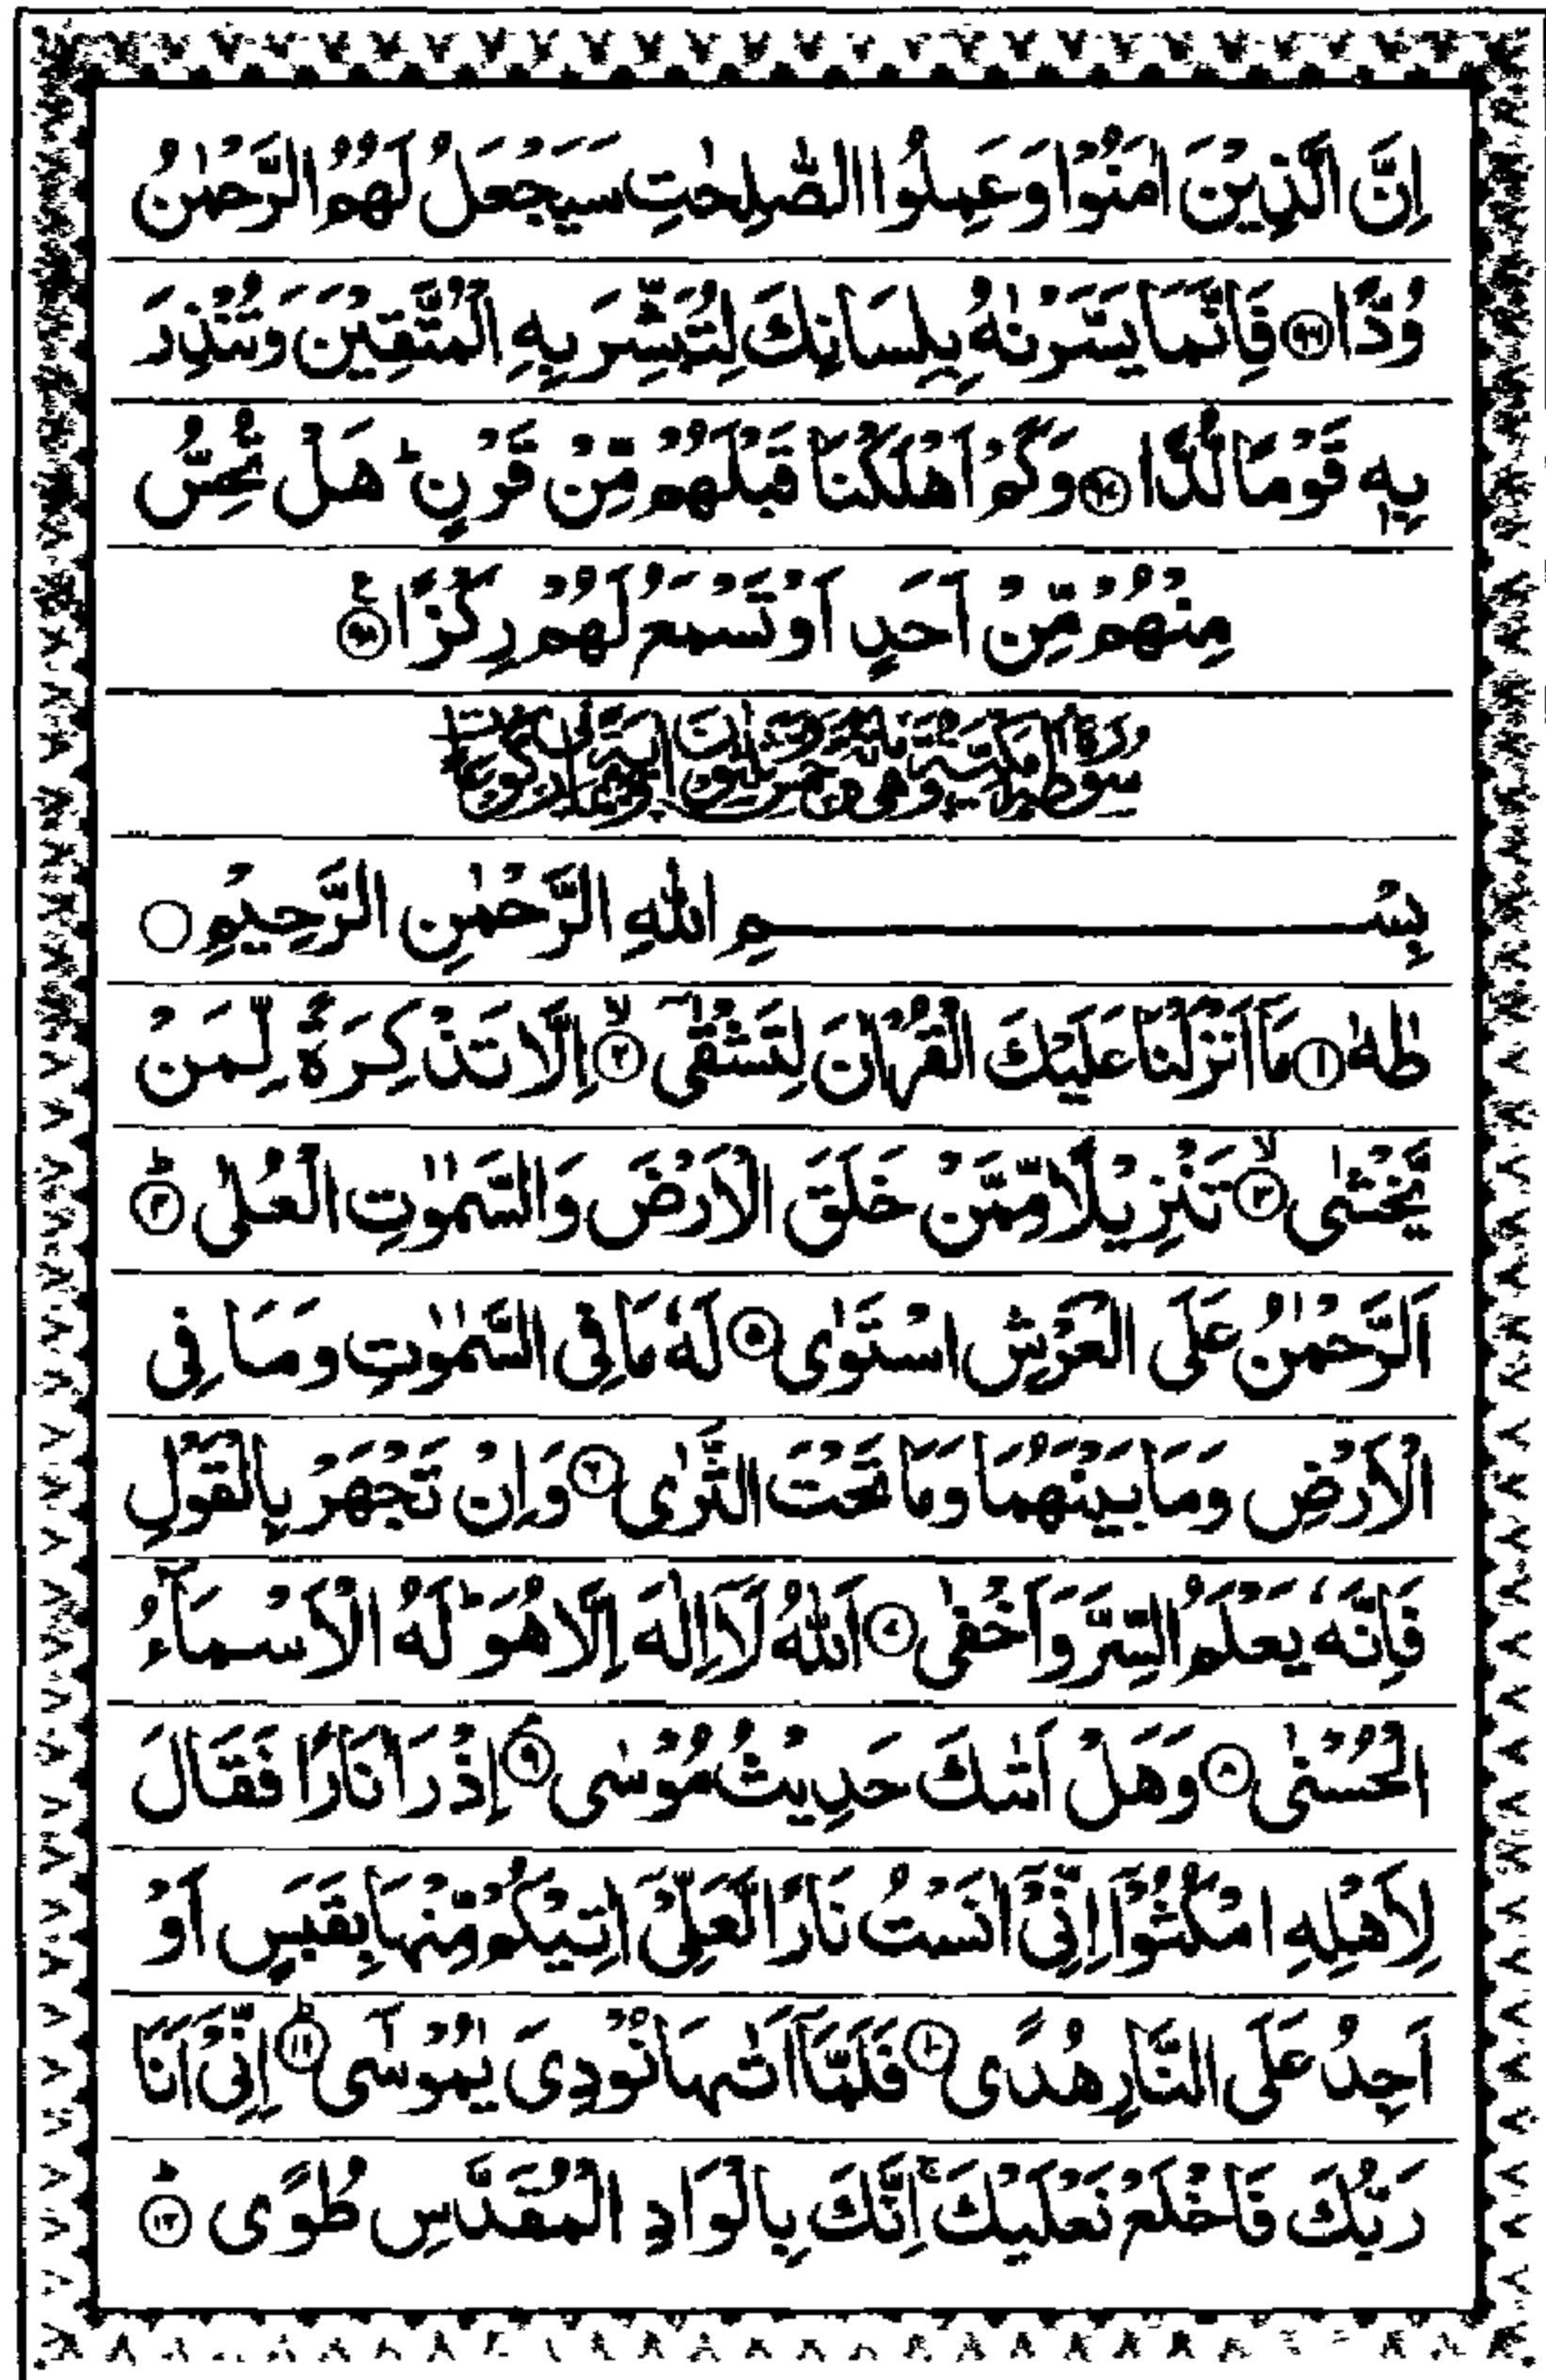 اِنَّ الَّذِيْنَ اٰمَنُوْا وَعَمِلُوا الصّٰلِحٰتِ سَيَجْعَلُ لَهُمُ الرَّحْمٰنُ
وُدًّا ۹۶ فَاِنَّمَا يَسَّرْنٰهُ بِلِسَانِكَ لِتُبَشِّرَ بِهِ الْمُتَّقِيْنَ وَتُنْذِرَ
بِهٖ قَوْمًا لُّدًّا ۹۷ وَكَمْ اَهْلَكْنَا قَبْلَهُمْ مِّنْ قَرْنٍ ؕ هَلْ تُحِسُّ
مِنْهُمْ مِّنْ اَحَدٍ اَوْ تَسْمَعُ لَهُمْ رِكْزًا ۹۸
بِسْـــــــــمِ اللّٰهِ الرَّحْمٰنِ الرَّحِيْمِ
طٰهٰ ۱ مَا اَنْزَلْنَا عَلَيْكَ الْقُرْاٰنَ لِتَشْقٰٓى ۲ اِلَّا تَذْكِرَةً لِّمَنْ
يَّخْشٰى ۳ تَنْزِيْلًا مِّمَّنْ خَلَقَ الْاَرْضَ وَالسَّمٰوٰتِ الْعُلٰى ۴
اَلرَّحْمٰنُ عَلَى الْعَرْشِ اسْتَوٰى ۵ لَهٗ مَا فِى السَّمٰوٰتِ وَمَا فِى
الْاَرْضِ وَمَا بَيْنَهُمَا وَمَا تَحْتَ الثَّرٰى ۶ وَاِنْ تَجْهَرْ بِالْقَوْلِ
فَاِنَّهٗ يَعْلَمُ السِّرَّ وَاَخْفٰى ۷ اَللّٰهُ لَآ اِلٰهَ اِلَّا هُوَ ؕ لَهُ الْاَسْمَآءُ
الْحُسْنٰى ۸ وَهَلْ اَتٰىكَ حَدِيْثُ مُوْسٰى ۹ اِذْ رَاٰ نَارًا فَقَالَ
لِاَهْلِهِ امْكُثُوْٓا اِنِّىْٓ اٰنَسْتُ نَارًا لَّعَلِّىْٓ اٰتِيْكُمْ مِّنْهَا بِقَبَسٍ اَوْ
اَجِدُ عَلَى النَّارِ هُدًى ۱۰ فَلَمَّآ اَتٰىهَا نُوْدِىَ يٰمُوْسٰٓى ۱۱ اِنِّىْٓ اَنَا
رَبُّكَ فَاخْلَعْ نَعْلَيْكَ ۚ اِنَّكَ بِالْوَادِ الْمُقَدَّسِ طُوًى ۱۲